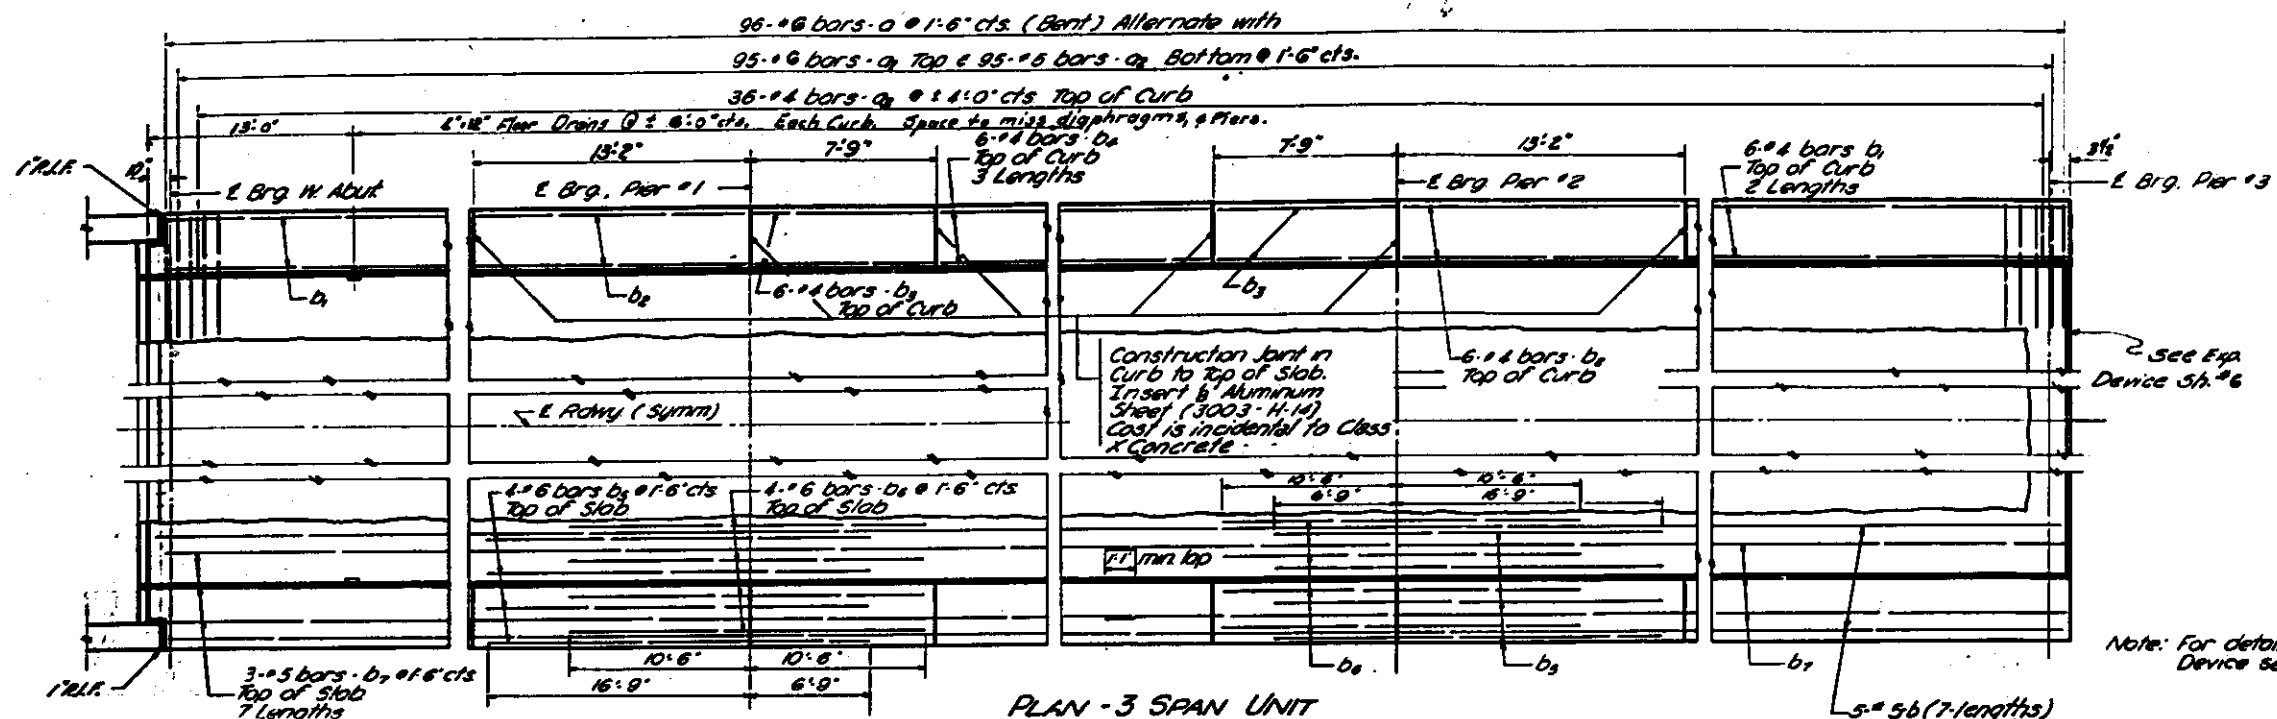 96-#6 bars-a @ 1'-6" cts. (Bent) Alternate with
95-#6 bars-a1 Top & 95-#5 bars-a2 Bottom @ 1'-6" cts.
36-#4 bars-a3 @ ± 4'-0" cts. Top of Curb
13'-0"
Floor Drains @ ± 6'-0" cts. Each Curb. Space to miss diaphragms, & Piers.
1" P.J.F.
10"
℄ Brg. W. Abut.
13'-2"
℄ Brg. Pier #1
7'-9"
6-#4 bars-b4
Top of Curb
3 Lengths
7'-9"
13'-2"
℄ Brg. Pier #2
6-#4 bars b1
Top of Curb
2 Lengths
3½"
℄ Brg. Pier #3
b1
b2
6-#4 bars-b3
Top of Curb
b3
Construction Joint in
Curb to Top of Slab.
Insert ⅛" Aluminum
Sheet (3003-H-14)
Cost is incidental to Class
X Concrete
6-#4 bars-b2
Top of Curb
See Exp.
Device Sh. #6
℄ Rdwy. (Symm)
4-#6 bars b5 @ 1'-6" cts
Top of Slab
4-#6 bars-b6 @ 1'-6" cts.
Top of Slab
10'-6"
10'-6"
6'-9"
16'-9"
1'-1" min. lap
10'-6"
10'-6"
16'-9"
6'-9"
b6
b5
b7
1" P.J.F.
3-#5 bars-b7 @ 1'-6" cts
Top of Slab
7 Lengths
PLAN - 3 SPAN UNIT
5-#5 b (7-lengths)
Note: For detai
Device se